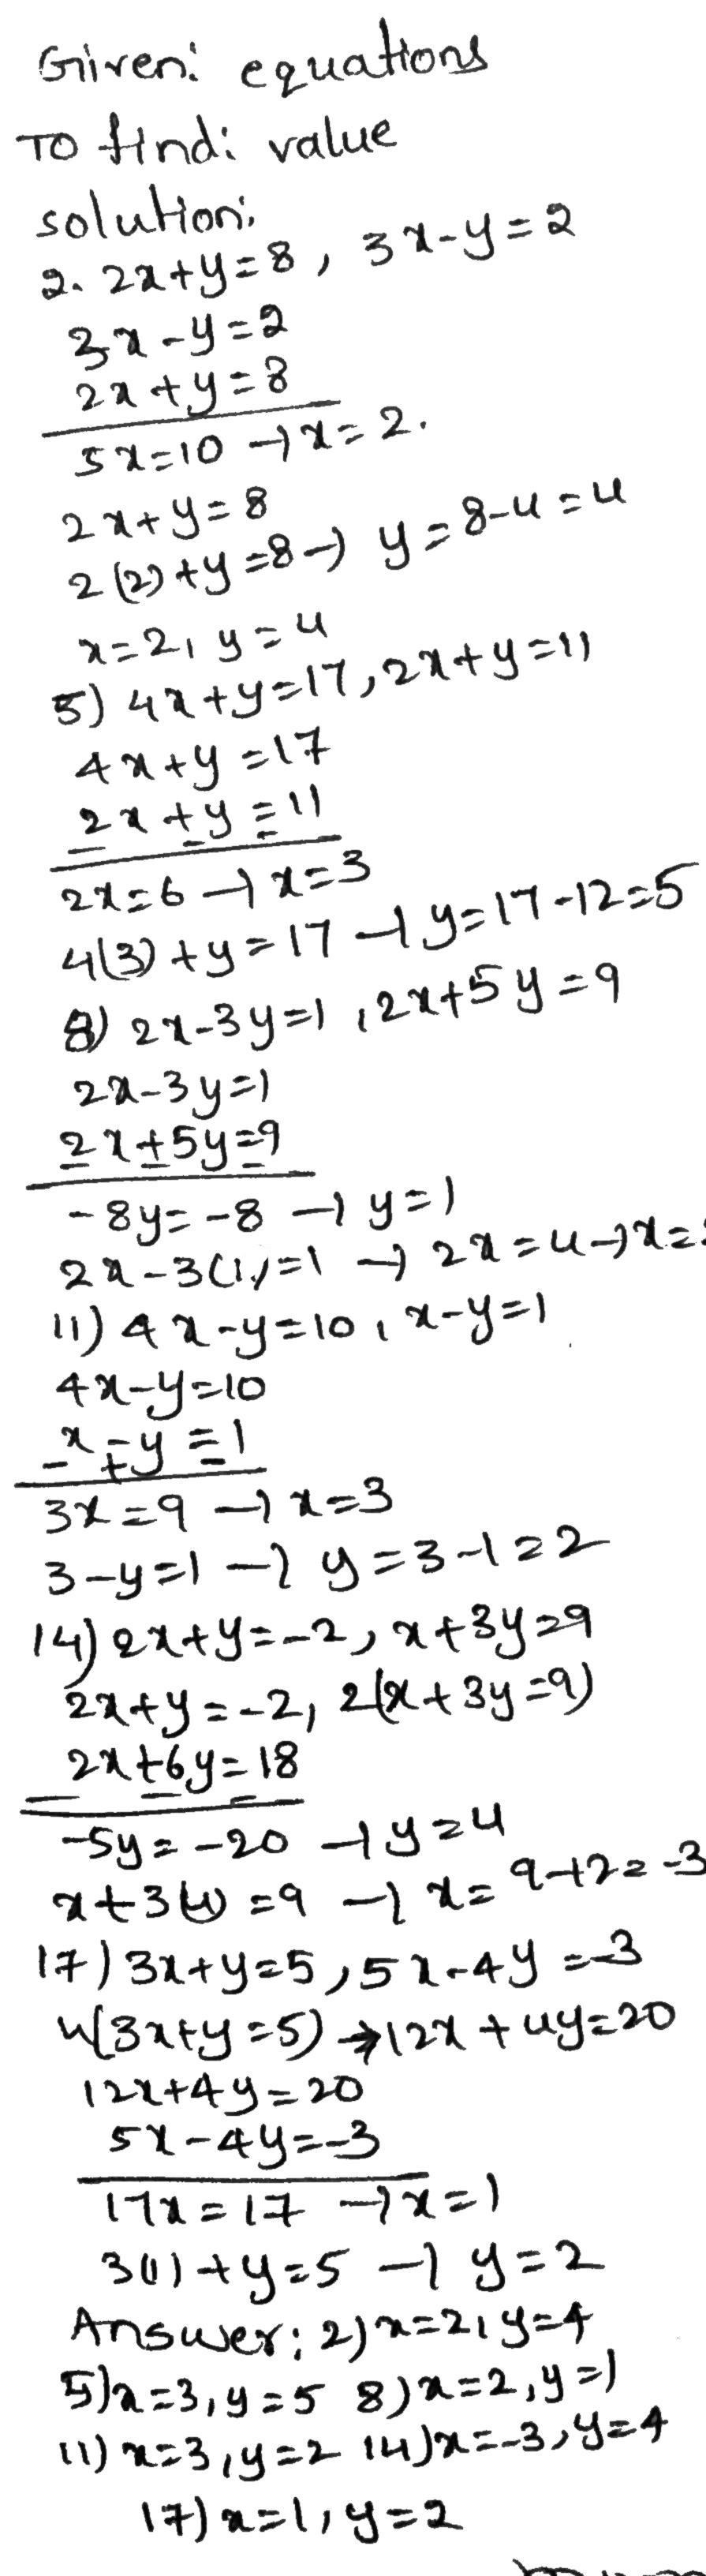 Given: equations
To find: value
solution:
2. 2x+y=8, 3x-y=2
3x-y=2
2x+y=8
5x=10 → x=2.
2x+y=8
2(2)+y=8 → y=8-4=4
x=2, y=4
5) 4x+y=17, 2x+y=11
4x+y=17
2x+y=11
- - -
2x=6 → x=3
4(3)+y=17 → y=17-12=5
8) 2x-3y=1, 2x+5y=9
2x-3y=1
2x+5y=9
- - -
-8y=-8 → y=1
2x-3(1)=1 → 2x=4 → x=
11) 4x-y=10, x-y=1
4x-y=10
x-y=1
- + -
3x=9 → x=3
3-y=1 → y=3-1=2
14) 2x+y=-2, x+3y=9
2x+y=-2, 2(x+3y=9)
2x+6y=18
- - -
-5y=-20 → y=4
x+3(4)=9 → x=9-12=-3
17) 3x+y=5, 5x-4y=-3
4(3x+y=5) → 12x+4y=20
12x+4y=20
5x-4y=-3
17x=17 → x=1
3(1)+y=5 → y=2
Answer: 2) x=2, y=4
5) x=3, y=5 8) x=2, y=1
11) x=3, y=2 14) x=-3, y=4
17) x=1, y=2